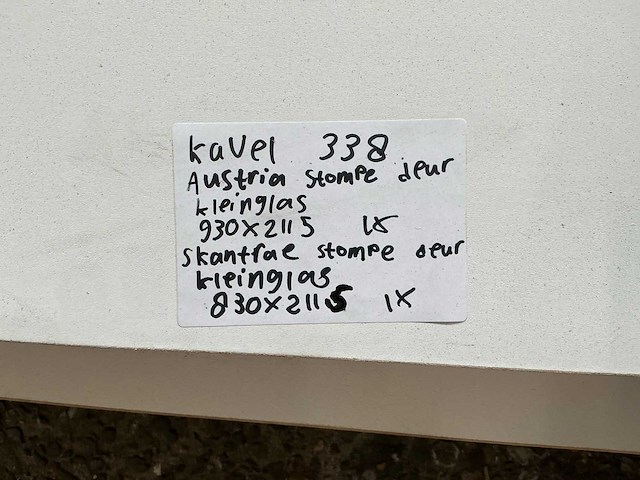 kavel 338
Austria stompe deur
kleinglas
930x2115 1x
skantrae stompe deur
kleinglas
830x2115 1x